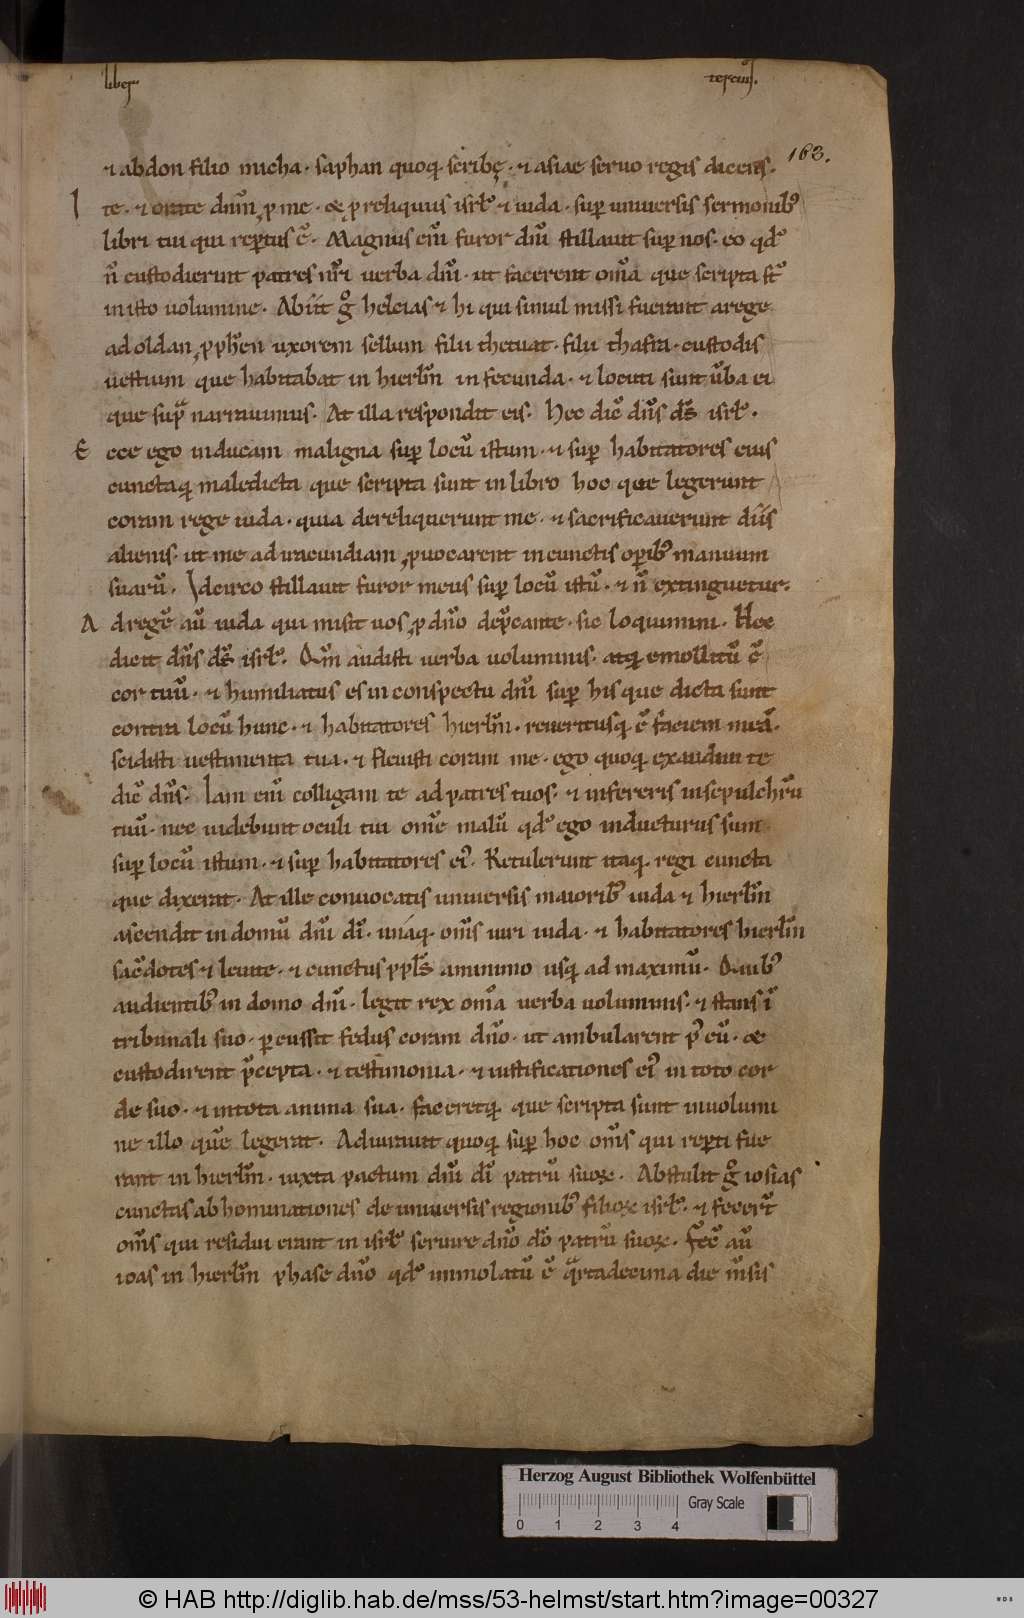 liber terciuſ.
163.
⁊ abdon filio micha. saphan quoq; scribę. ⁊ asiae seruo regis dicens.
Ite. ⁊ orate dnm̄ p me. & p reliquiis isrl̄ ⁊ iuda. sup uniuersis sermonib;
libri tui qui reptus ē. Magnus em̄ furor dnī stillauit sup nos. eo qd̄
n̄ custodierunt patres nr̄i uerba dnī. ut facerent om̄a que scripta st̄
in isto uolumine. Abiit g̊ helcias ⁊ hi qui simul missi fuerant a rege
ad oldan pphen uxorem sellum filii thecuat. filii thasra. custodis
uestium que habitabat in hierlm̄ in secunda. ⁊ locuti sunt ūba ei
que supͣ narrauimus. At illa respondit eis. Hec dic̄ dn̄s ds̄ isrl̄.
Ecce ego inducam maligna sup locū istum. ⁊ sup habitatores eius
cunctaq; maledicta que scripta sunt in libro hoc que legerunt
coram rege iuda. quia dereliquerunt me. ⁊ sacrificauerunt diis
alienis. ut me ad iracundiam puocarent in cunctis opib; manuum
suarū. Idcirco stillauit furor meus sup locū istū. ⁊ n̄ extinguetur.
Ad regē aū iuda qui misit uos p dn̄o dep̄cante. sic loquimini. Hec
dicit dn̄s ds̄ isrl̄. Qm̄ audisti uerba uoluminis. atq; emollitū ē
cor tuū. ⁊ humiliatus es in conspectu dnī sup his que dicta sunt
contra locū hunc. ⁊ habitatores hierlm̄. reueritusq; ē faciem meā.
scidisti uestimenta tua. ⁊ fleuisti coram me. ego quoq; exaudiui te
dic̄ dn̄s. Iam em̄ colligam te ad patres tuos. ⁊ infereris in sepulchrū
tuū. nec uidebunt oculi tui om̄e malū qd̄ ego inducturus sum
sup locū istum. ⁊ sup habitatores ei᾽. Retulerunt itaq; regi cuncta
que dixerat. At ille conuocatis uniuersis maiorib; iuda ⁊ hierlm̄
ascendit in domū dnī dī. unáq; om̄s uiri iuda. ⁊ habitatores hierlm̄
sac̄dotes ⁊ leuite. ⁊ cunctus ppl̄s a minimo usq; ad maximū. Quib;
audientib; in domo dnī. legit rex om̄a uerba uoluminis. ⁊ stans ī
tribunali suo. pcussit fedus coram dn̄o. ut ambularent p᾽ eū. &
custodirent p̄cepta. ⁊ testimonia. ⁊ iustificationes ei᾽ in toto cor
de suo. ⁊ in tota anima sua. faceretq; que scripta sunt in uolumi
ne illo quē legerat. Adiurauit quoq; sup hoc om̄s qui repti fue
rant in hierlm̄. iuxta pactum dnī dī patrū suoꝝ. Abstulit g̊ iosias
cunctas abhominationes de uniuersis regionib; filioꝝ isrl̄. ⁊ fecert̄
om̄s qui residui erant in isrl̄ seruire dn̄o dō patrū suoꝝ. Fec̄ aū
ioas in hierlm̄ phase dn̄o qd̄ immolatū ē qͣrtadecima die m̄sis
Herzog August Bibliothek Wolfenbüttel
Gray Scale
0 1 2 3 4
© HAB http://diglib.hab.de/mss/53-helmst/start.htm?image=00327